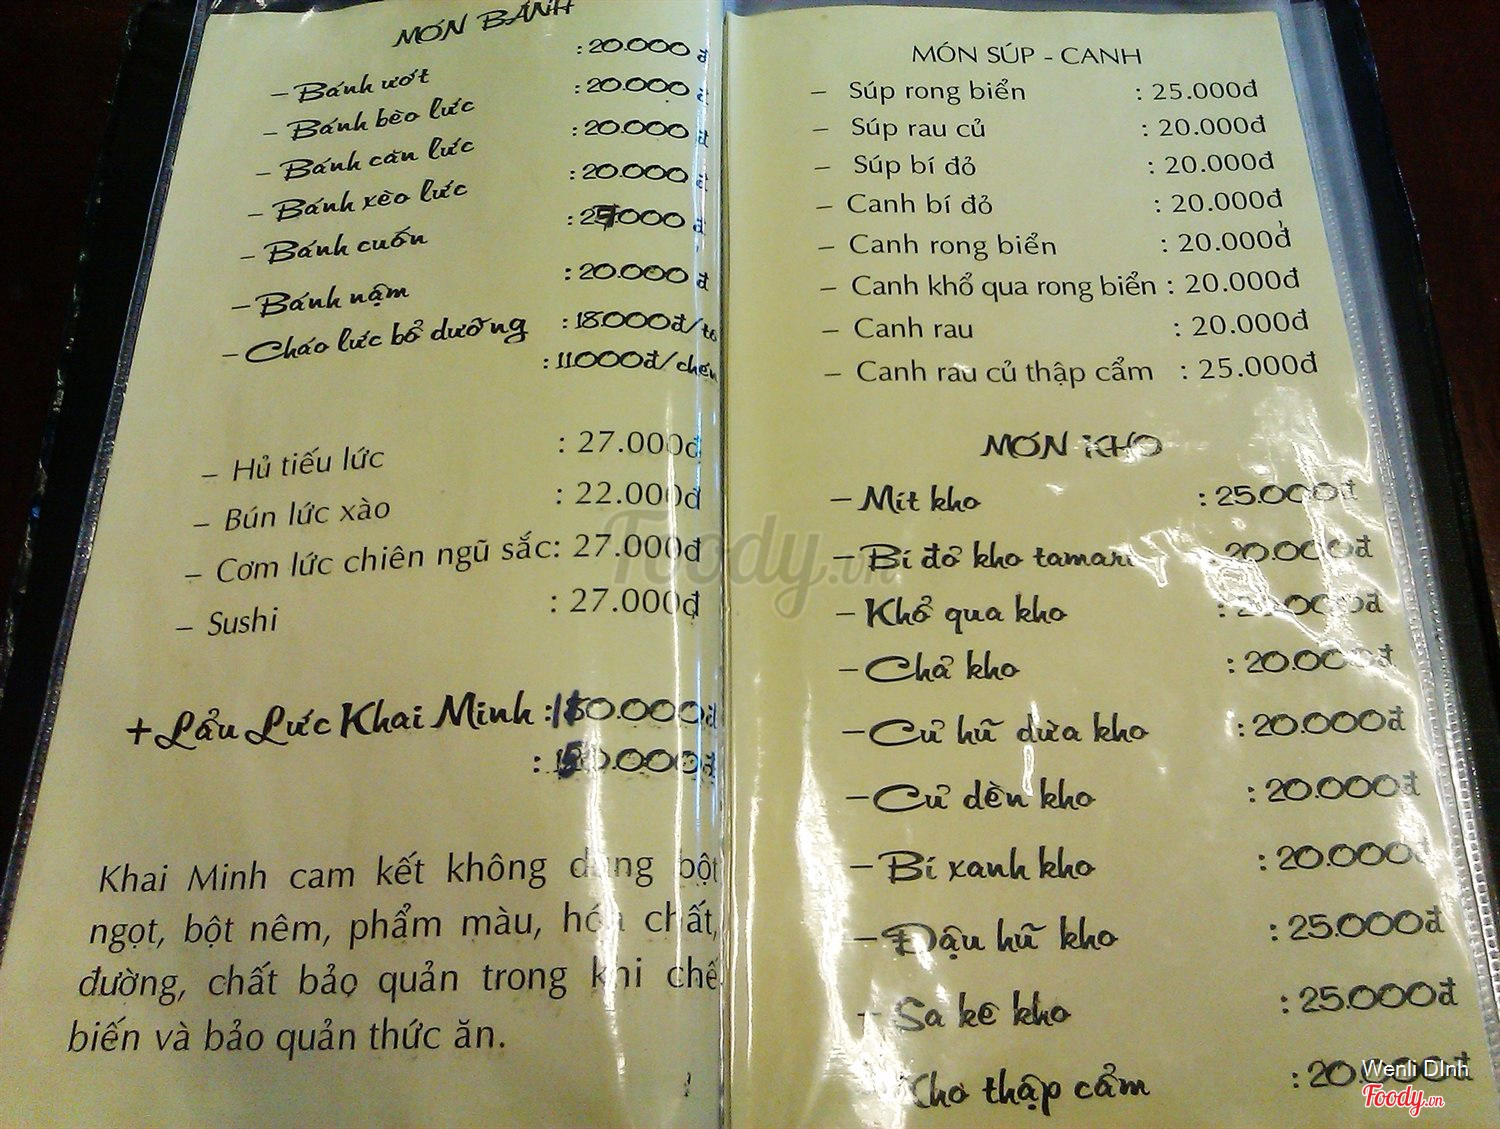 MÓN BÁNH
– Bánh ướt : 20.000 đ
– Bánh bèo lức : 20.000 đ
– Bánh căn lức : 20.000 đ
– Bánh xèo lức : 20.000 đ
– Bánh cuốn : 000 đ
– Bánh nậm : 20.000 đ
– Cháo lức bổ dưỡng : 18.000đ/tô
: 11.000đ/chén
– Hủ tiếu lức : 27.000đ
– Bún lức xào : 22.000đ
– Cơm lức chiên ngũ sắc: 27.000đ
– Sushi : 27.000đ
+ Lẩu Lức Khai Minh :
Khai Minh cam kết không dùng bột
ngọt, bột nêm, phẩm màu, hóa chất,
đường, chất bảo quản trong khi chế
biến và bảo quản thức ăn.
MÓN SÚP - CANH
– Súp rong biển : 25.000đ
– Súp rau củ : 20.000đ
– Súp bí đỏ : 20.000đ
– Canh bí đỏ : 20.000đ
– Canh rong biển : 20.000đ
– Canh khổ qua rong biển : 20.000đ
– Canh rau : 20.000đ
– Canh rau củ thập cẩm : 25.000đ
MÓN KHO
– Mít kho : 25.000đ
– Bí đỏ kho tamari : 20.000đ
– Khổ qua kho : 20.000đ
– Chả kho : 20.000đ
– Củ hũ dừa kho : 20.000đ
– Củ dền kho : 20.000đ
– Bí xanh kho : 20.000đ
– Đậu hũ kho : 25.000đ
– Sa kê kho : 25.000đ
– Kho thập cẩm : 20.000đ
Foody.vn
Wenli DInh
Foody.vn